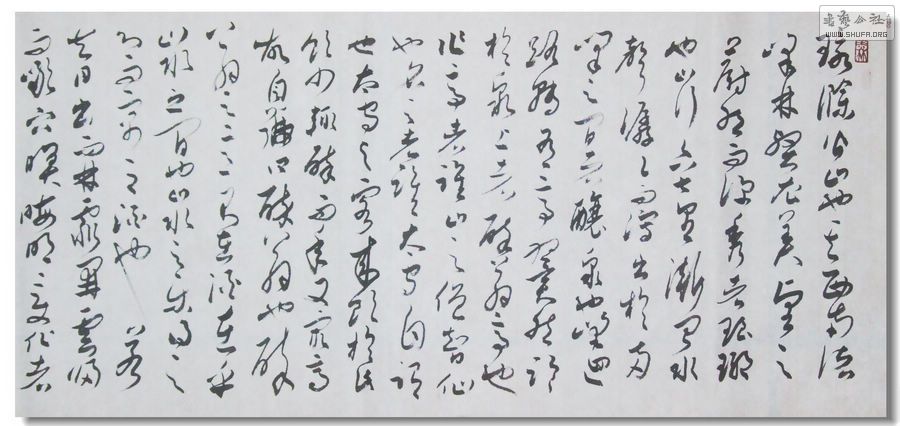 書藝公社
WWW.SHUFA.ORG
環滁皆山也其西南諸
峰林壑尤美望之
蔚然而深秀者琅琊
也山行六七里漸聞水
聲潺潺而瀉出於兩
峰之間者釀泉也峰回
路轉有亭翼然臨
於泉上者醉翁亭也
作亭者誰山之僧智仙
也名之者誰太守自謂
也太守與客來飲於此
飲少輒醉而年又最高
故自號曰醉翁也醉
翁之意不在酒在乎
山水之間也山水之樂得之
心而寓之酒也若
夫日出而林霏開雲歸
而巖穴暝晦明變化者